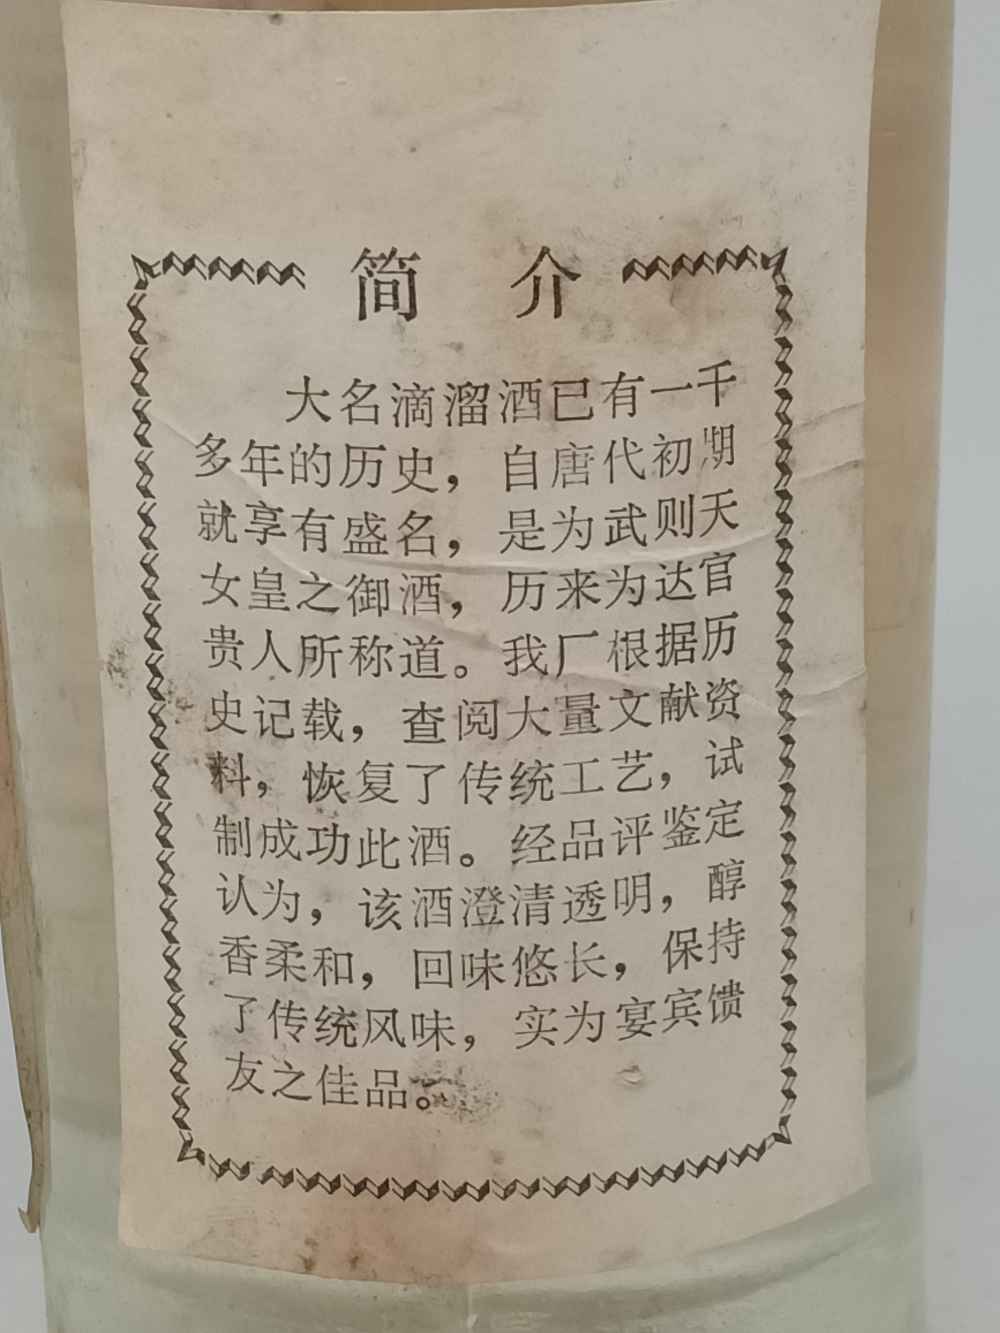 简介
大名滴溜酒已有一千
多年的历史，自唐代初期
就享有盛名，是为武则天
女皇之御酒，历来为达官
贵人所称道。我厂根据历
史记载，查阅大量文献资
料，恢复了传统工艺，试
制成功此酒。经品评鉴定
认为，该酒澄清透明，醇
香柔和，回味悠长，保持
了传统风味，实为宴宾馈
友之佳品。